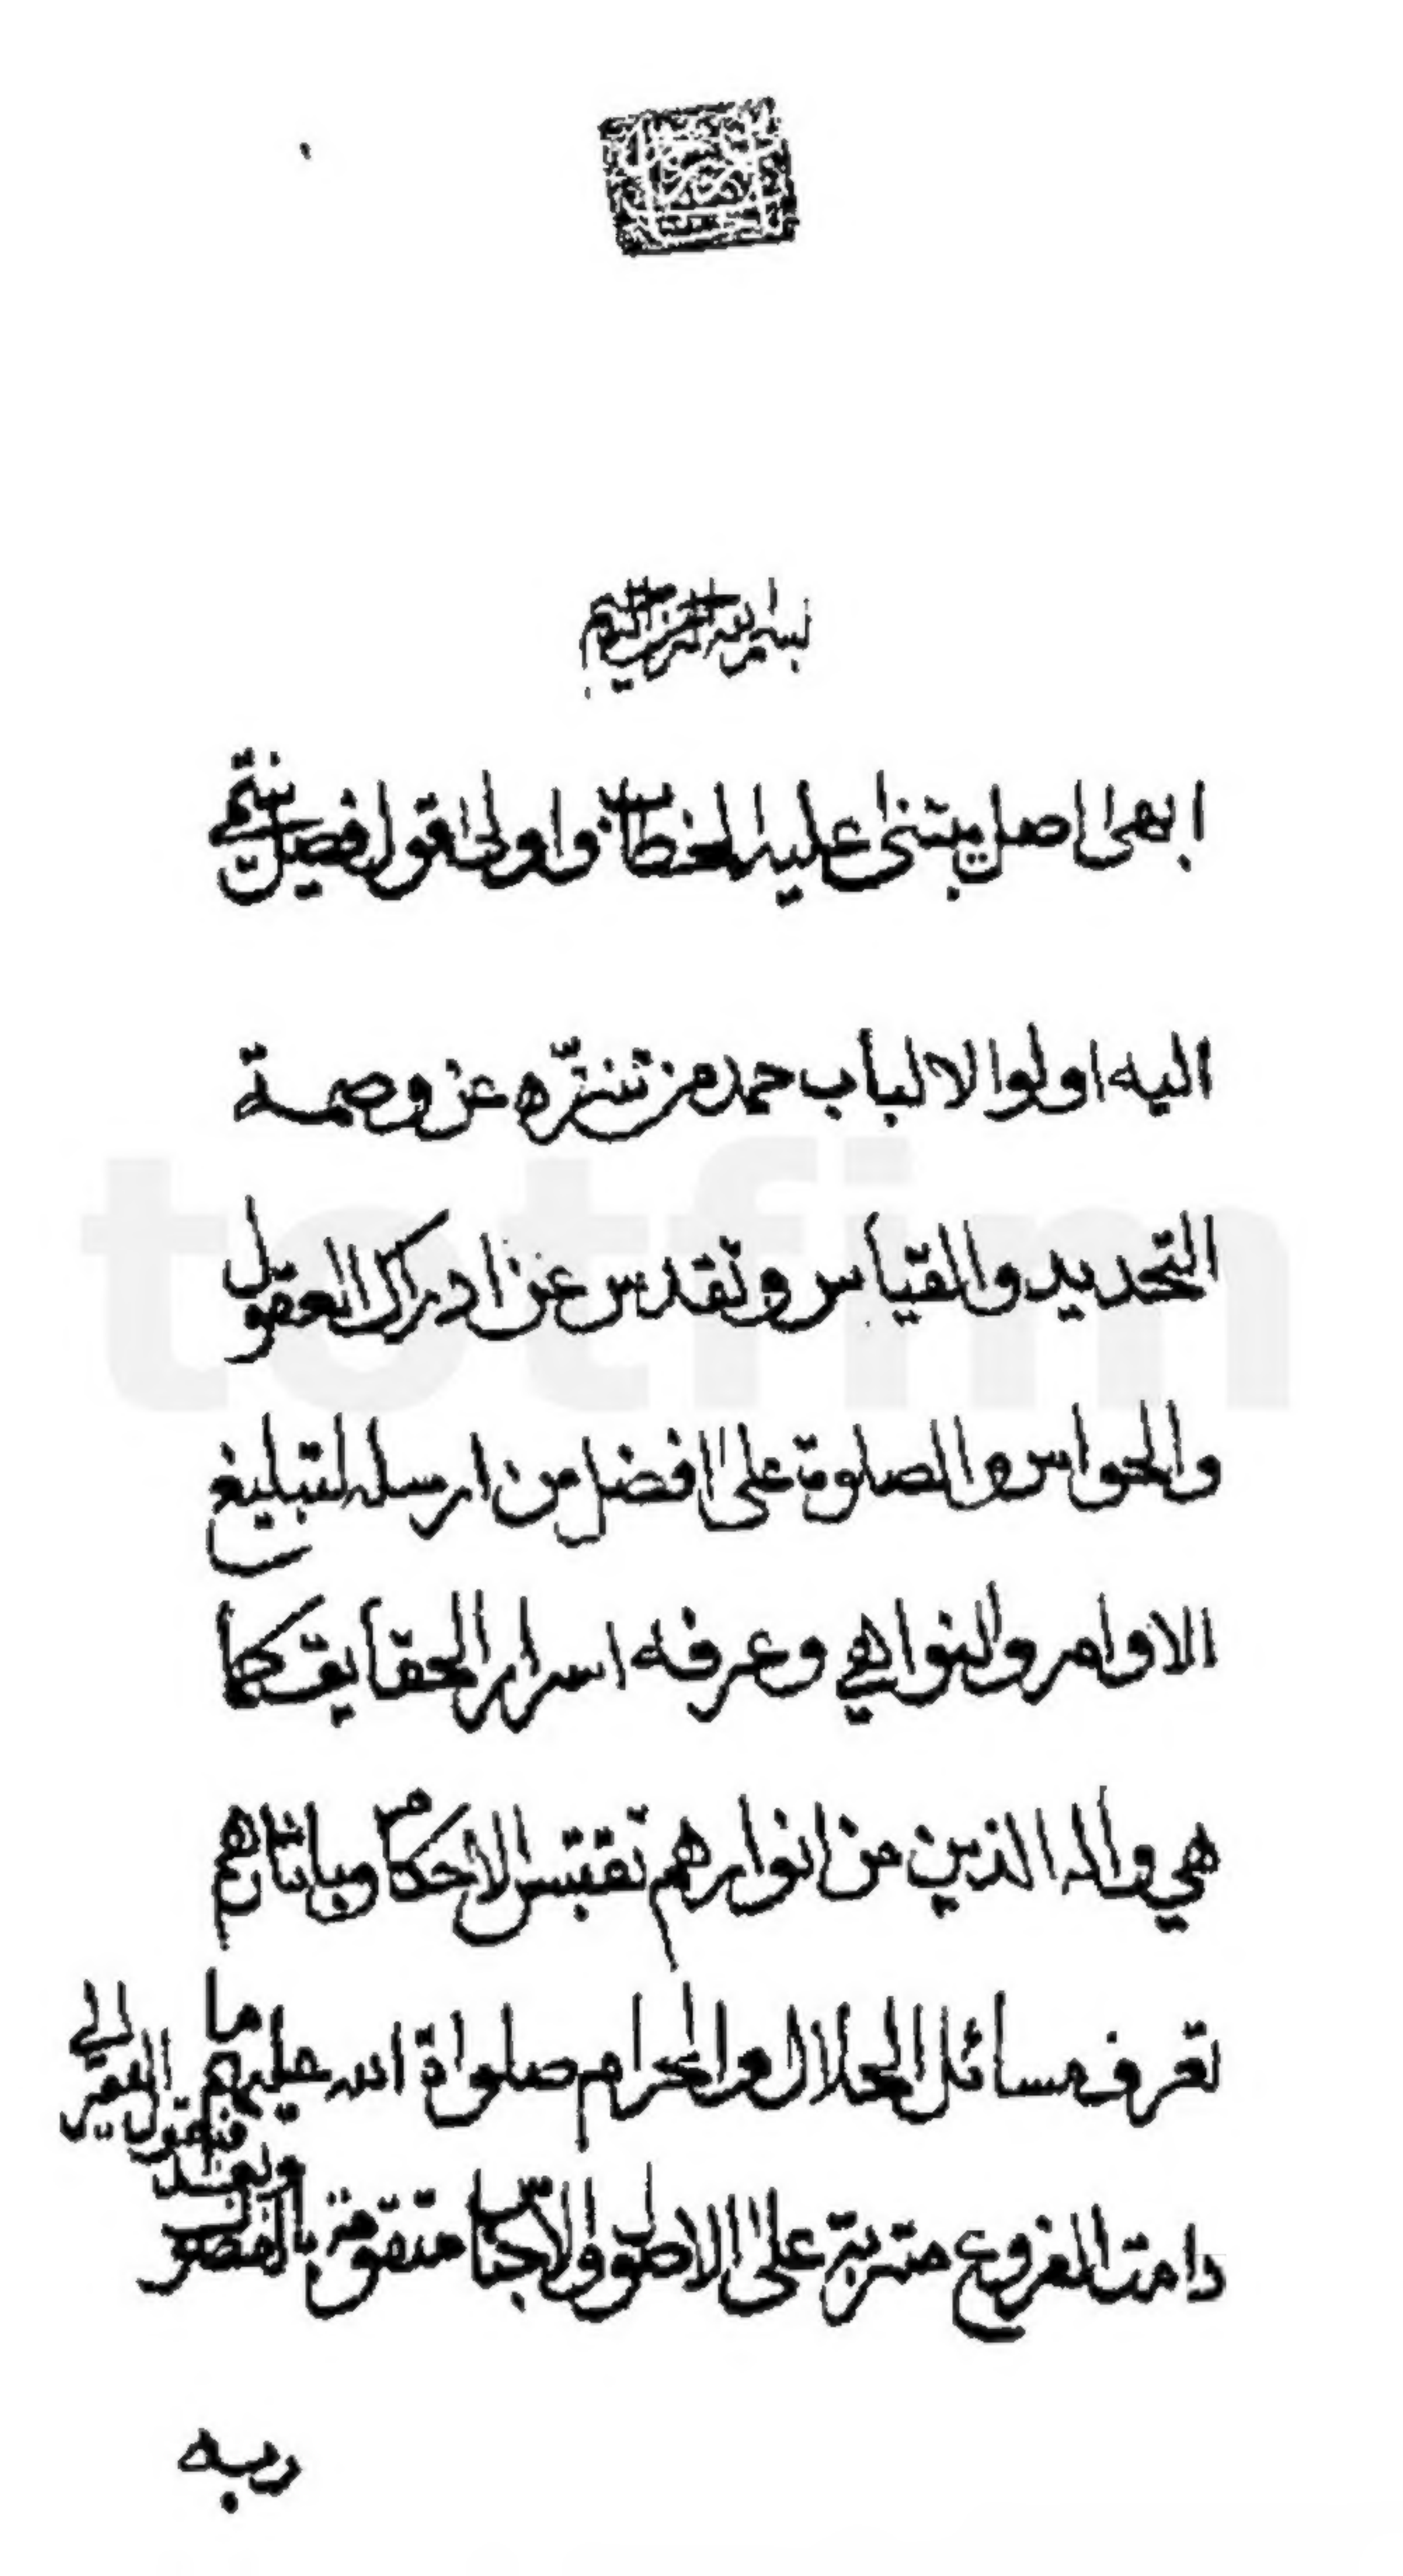 بسم الله الرحمن الرحيم
ابهى اصل يبتنى عليه الخطاب واولى قول فصل ينتهى
اليه اولوا الالباب حمد من تنزّه عن وصمة
التحديد والقياس وتقدس عن ادراك العقول
والحواس والصلوة على افضل من ارسله لتبليغ
الاوامر والنواهي وعرفه اسرار الحقايق كما
هي واله الذين من انوارهم تقتبس الاحكام وباثارهم
تعرف مسائل الحلال والحرام صلواة الله عليهم ما
دامت الفروع مترتبة على الاصول والاجناس متقومة بالفصول
وبعد
فيقول الفقير الى
ربه
totfim